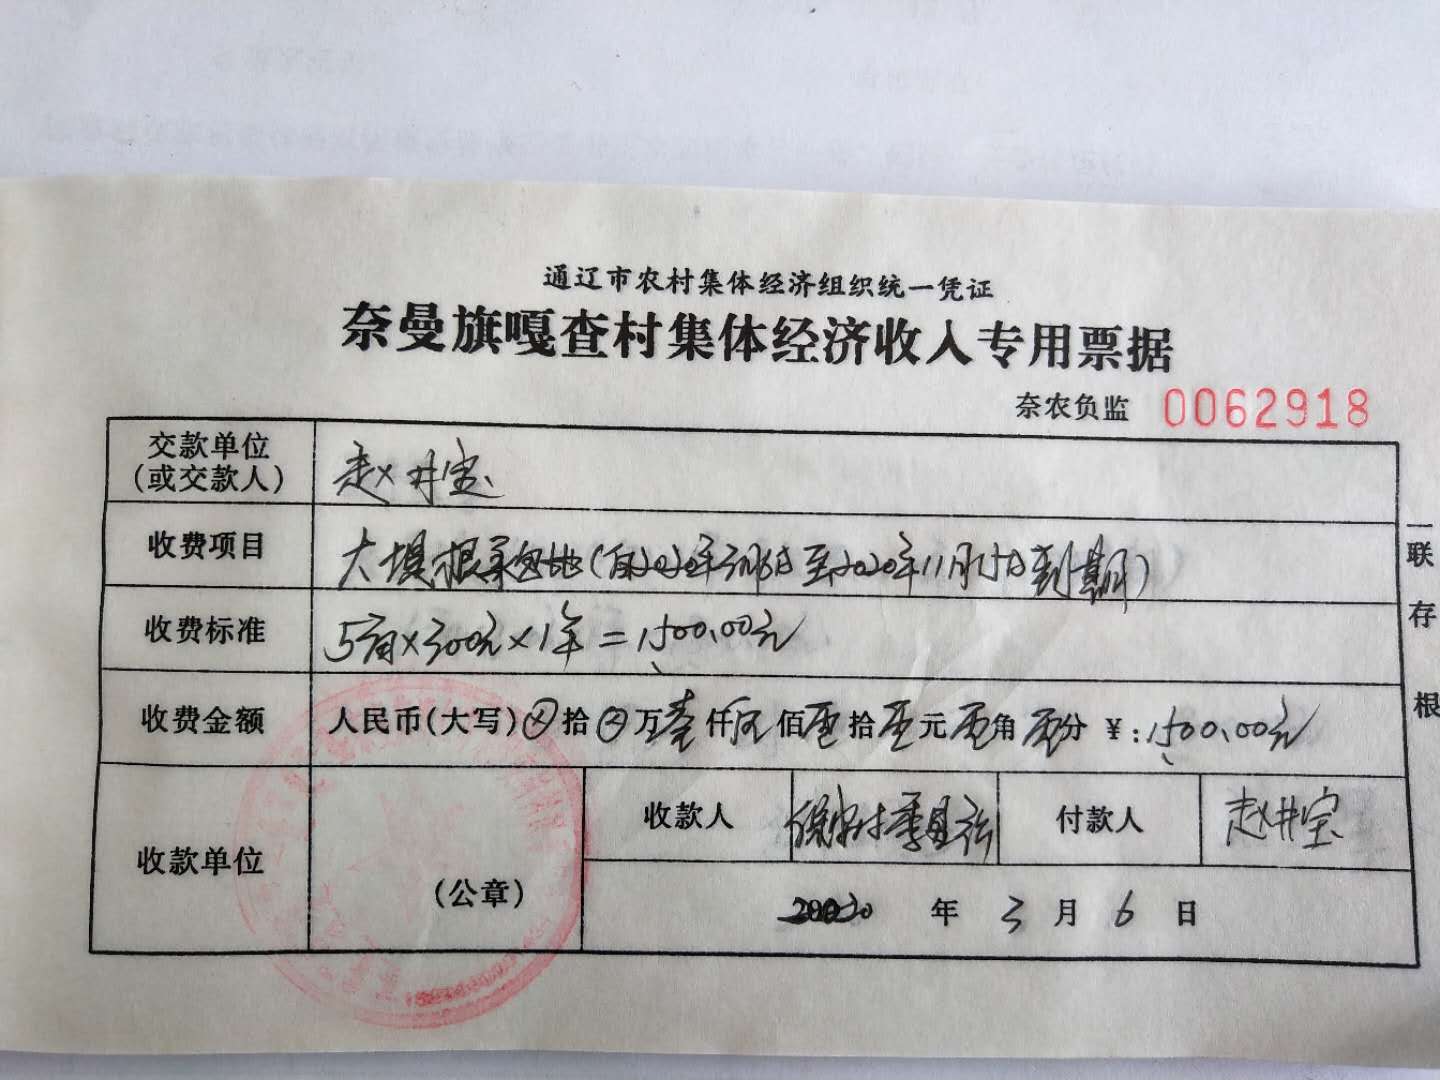 通辽市农村集体经济组织统一凭证
奈曼旗嘎查村集体经济收入专用票据
奈农负监 0062918
交款单位
(或交款人) 赵井宝
收费项目 大堤根承包地(自2020年3月6日至2020年11月15日到期)
收费标准 5亩×300元×1年=1500.00元
收费金额 人民币(大写)⊗拾⊗万壹仟伍佰零拾零元零角零分 ¥:1500.00元
收款单位 (公章) 收款人 付款人 赵井宝
2020 年 3 月 6 日
一联存根